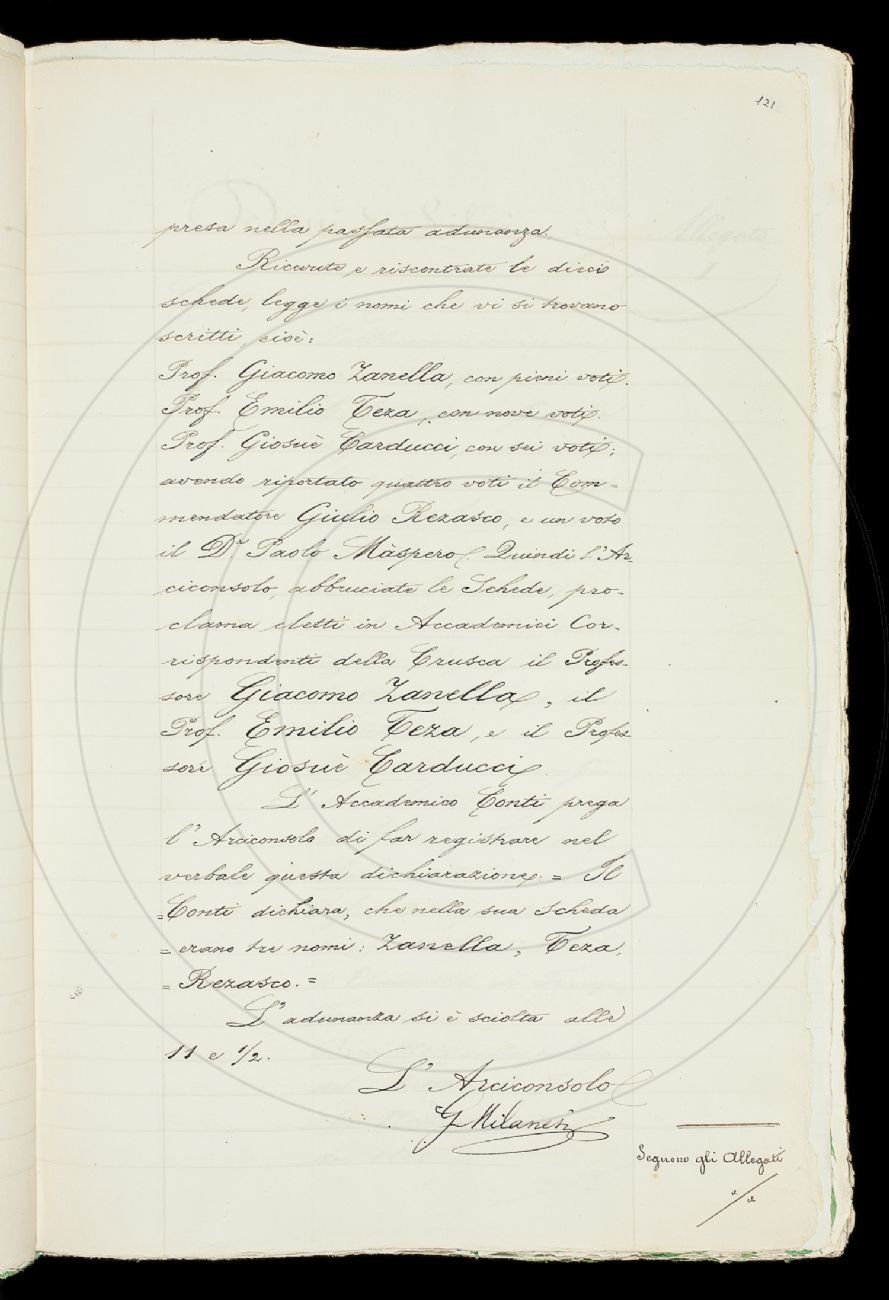 121
presa nella passata adunanza.
Ricevute e riscontrate le dieci
schede, legge i nomi che vi si trovano
scritti, cioè:
Prof. Giacomo Zanella, con pieni voti.
Prof. Emilio Teza, con nove voti.
Prof. Giosuè Carducci, con sei voti;
avendo riportato quattro voti il Com=
mendatore Giulio Rezasco, e un voto
il Dr. Paolo Màspero. Quindi l'Ar-
ciconsolo, abbruciate le Schede, pro-
clama eletti in Accademici Cor-
rispondenti della Crusca il Profes-
sore Giacomo Zanella, il
Prof. Emilio Teza, e il Profes
sore Giosuè Carducci.
L'Accademico Conti prega
l'Arciconsolo di far registrare nel
verbale questa dichiarazione: = Il
=Conti dichiara, che nella sua scheda
= erano tre nomi: Zanella, Teza,
= Rezasco. =
L'adunanza si è sciolta alle
11 e 1/2.
L'Arciconsolo
G Milanesi
Seguono gli Allegati